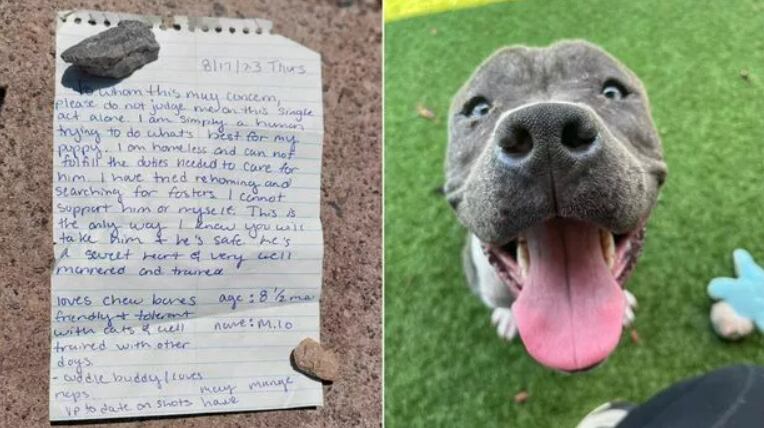 8/17/23 Thurs
To whom this may concern,
please do not judge me on this single
act alone. I am simply a human
trying to do whats best for my
puppy. I am homeless and can not
fulfill the duties needed to care for
him. I have tried rehoming and
searching for fosters. I cannot
support him or myself. This is
the only way I knew you will
take him & he's safe. he's
a sweet heart & very well
mannered and trained
loves chew bones age: 8 1/2 mo
friendly & tolerant
with cats & well name: Milo
trained with other
dogs.
- cuddle buddy/loves
naps may mange
up to date on shots have